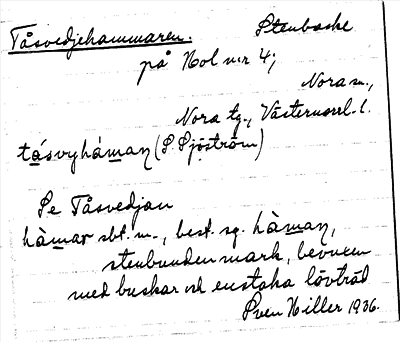 Tåsvedjehammaren. Stenbacke
på Hol n:r 4;
Nora sn.,
Nora tg., Västernorrl. l.
tásvyhàmaṇ (S. Sjöström)
Se Tåsvedjan
hàmar sbt. m., best. sg. hàmaṇ,
stenbunden mark, bevuxen
med buskar och enstaka lövträd
Sven Hiller 1936.